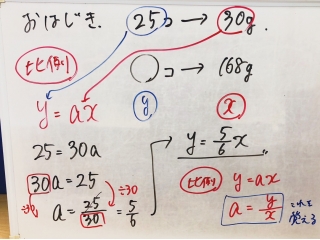 おはじき. 25コ → 30g.
比例 ○コ → 168g
y = ax y x
25 = 30a
30a = 25
÷30 ÷30
a = 25/30 = 5/6
→ y = 5/6 x
比例 y = ax
a = y/x これも使える